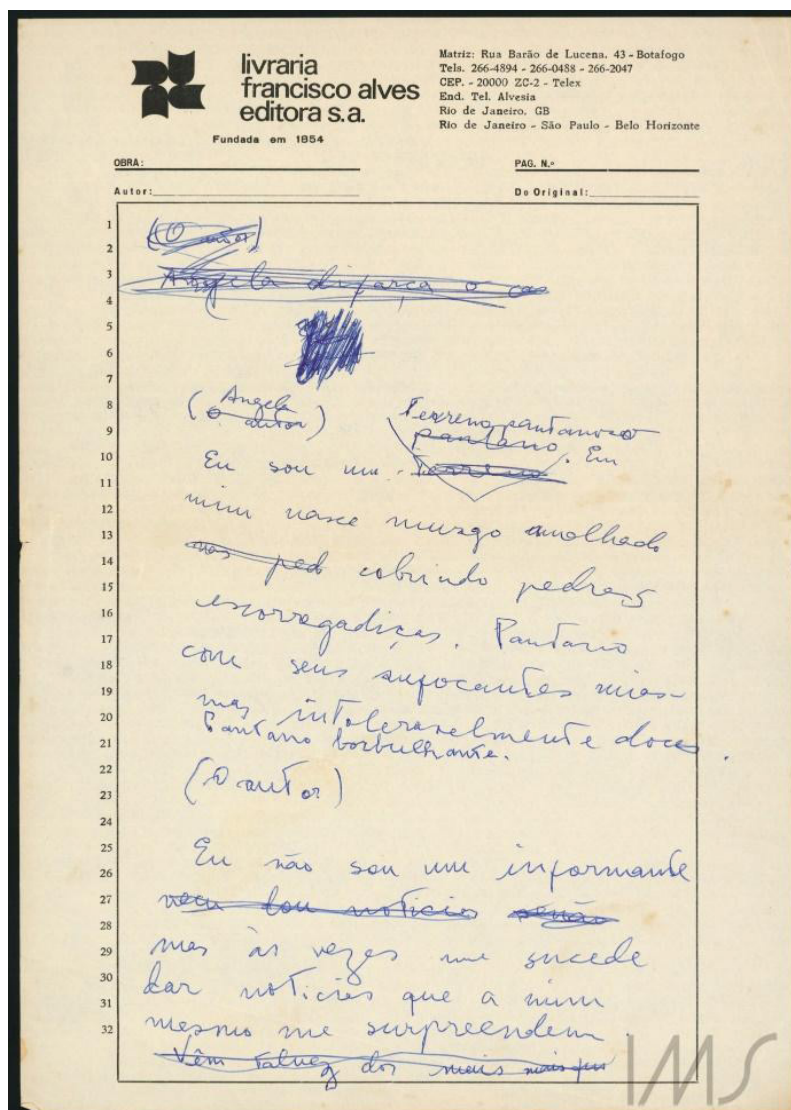 livraria
francisco alves
editora s.a.
Fundada em 1854
Matriz: Rua Barão de Lucena, 43 - Botafogo
Tels. 266-4894 - 266-0488 - 266-2047
CEP. - 20000 ZC-2 - Telex
End. Tel. Alvesia
Rio de Janeiro. GB
Rio de Janeiro - São Paulo - Belo Horizonte
OBRA:
PAG. N.º
Autor:
Do Original:
1
2
3
4
5
6
7
8
9
10
11
12
13
14
15
16
17
18
19
20
21
22
23
24
25
26
27
28
29
30
31
32
(O autor)
Angela difarça o cas
Angela
(O autor)
Terreno pantanoso
pantano. Em
Eu sou um Terreno
mim nasce musgo molhado
nas ped cobrindo pedras
escorregadiças. Pantano
com seus sufocantes mias-
mas intoleravelmente doces.
Pantano borbulhante.
(O autor)
Eu não sou um informante
nem dou noticias senão
mas às vezes me sucede
dar noticias que a mim
mesmo me surpreendem.
Vêm talvez dos mais mais
IMS